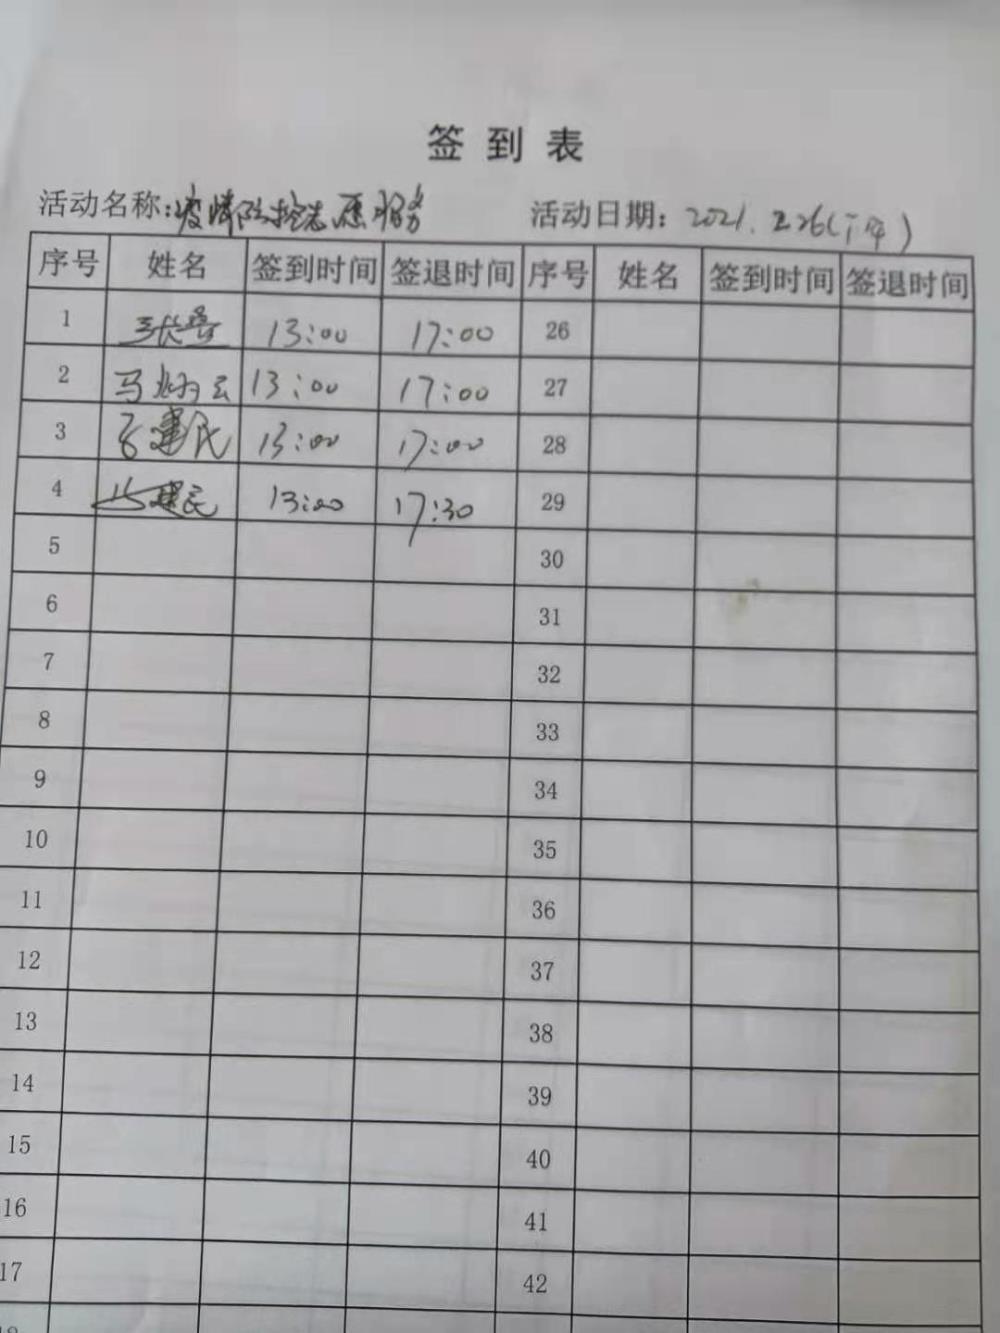 签到表
活动名称:疫情防控志愿服务 活动日期: 2021.2.26(下午)
序号 姓名 签到时间 签退时间 序号 姓名 签到时间 签退时间
1 13:00 17:00 26
2 马 云 13:00 17:00 27
3 建民 13:00 17:00 28
4 建民 13:00 17:30 29
5 30
6 31
7 32
8 33
9 34
10 35
11 36
12 37
13 38
14 39
15 40
16 41
17 42